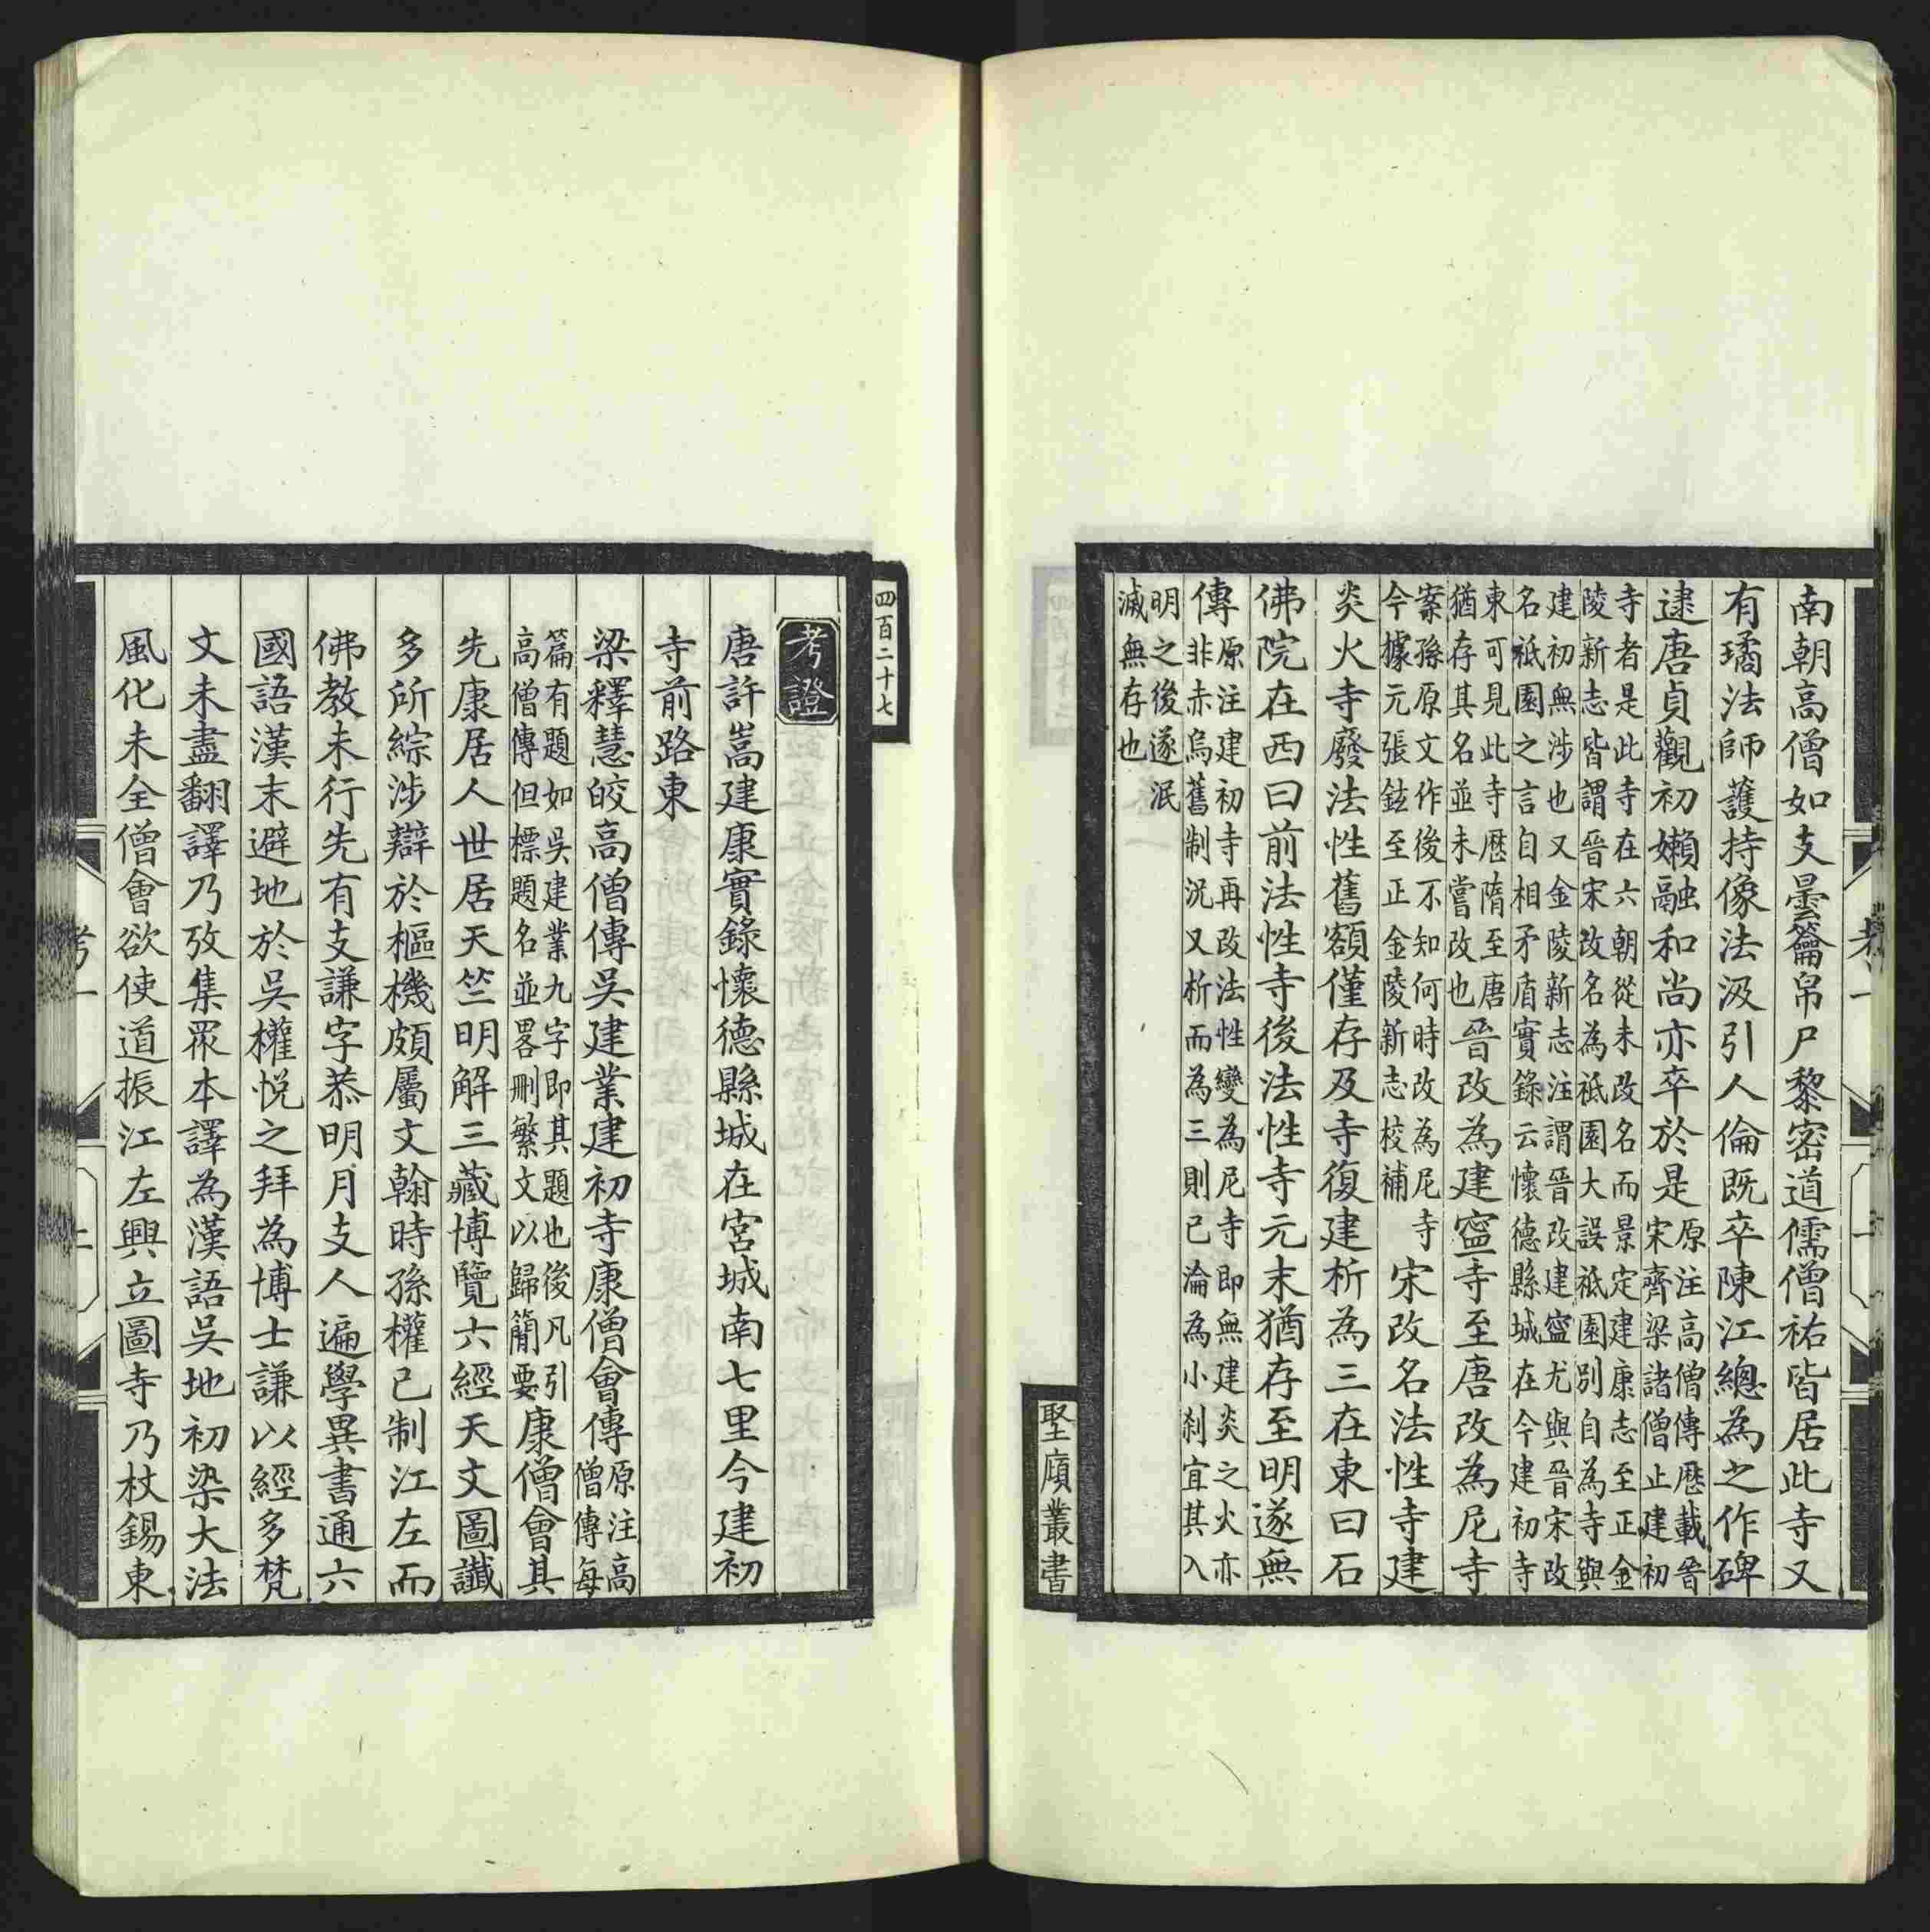 南朝高僧如支曇籥帛尸黎密道儒僧祐皆居此寺又
有璚法師護持像法汲引人倫既卒陳江總為之作碑
逮唐貞觀初嬾融和尚亦卒於是
原注高僧傳歷載晉
宋齊梁諸僧止建初
寺者是此寺在六朝從未改名而景定建康志至正金
陵新志皆謂晉宋改名為祗園大誤祗園別自為寺與
建初無涉也又金陵新志注謂晉改建寍尤與晉宋改
名祗園之言自相矛盾實錄云懷德縣城在今建初寺
東可見此寺歷隋至唐
猶存其名並未嘗改也
晉改為建寍寺至唐改為尼寺
案孫原文作後不知何時改為尼寺
今據元張鉉至正金陵新志校補
宋改名法性寺建
炎火寺廢法性舊額僅存及寺復建析為三在東曰石
佛院在西曰前法性寺後法性寺元末猶存至明遂無
傳
原注建初寺再改法性變為尼寺即無建炎之火亦
非赤烏舊制況又析而為三則已淪為小刹宜其入
明之後遂泯
滅無存也
堅廎叢書
四百二十七
考證
唐許嵩建康實錄懷德縣城在宮城南七里今建初
寺前路東
梁釋慧皎高僧傳吳建業建初寺康僧會傳
原注高
僧傳每
篇有題如吳建業九字即其題也後凡引
高僧傳但標題名並畧刪繁文以歸簡要
康僧會其
先康居人世居天竺明解三藏博覽六經天文圖讖
多所綜涉辯於樞機頗屬文翰時孫權已制江左而
佛教未行先有支謙字恭明月支人遍學異書通六
國語漢末避地於吳權悅之拜為博士謙以經多梵
文未盡翻譯乃攷集眾本譯為漢語吳地初染大法
風化未全僧會欲使道振江左興立圖寺乃杖錫東